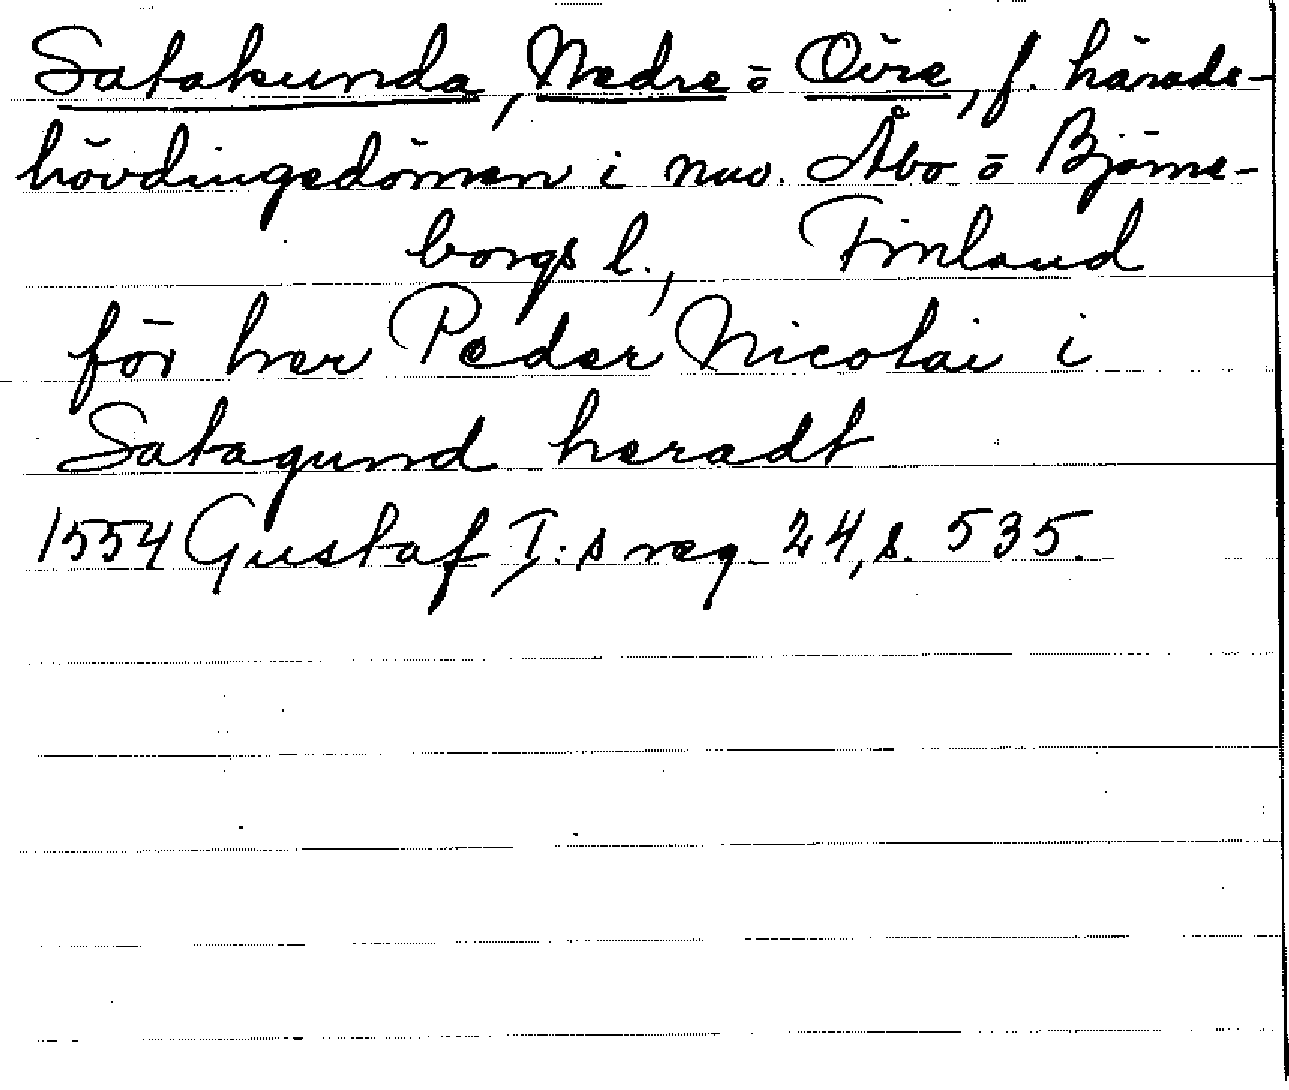 Satakunda, Nedre o Övre, f. härads-
hövdingedömen i nuv. Åbo o Björne-
borgs l., Finland
för her Peder Nicolai i
Satagund heradt
1554 Gustaf I:s reg. 24, s. 535.